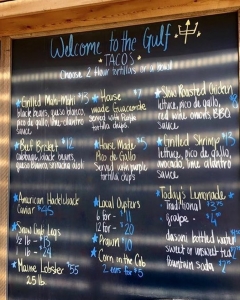 Welcome to the Gulf
TACOS
Choose 2 flour tortillas or a bowl
Grilled Mahi Mahi $13
black beans, queso blanco,
pico de gallo, lime cilantro
sauce
Beef Brisket $12
cabbage, black beans,
queso blanco, sriracha aioli
House $7
made Guacamole
Served with purple
tortilla chips
House Made $5
Pico de Gallo
Served with purple
tortilla chips
Slow Roasted Chicken
lettuce, pico de gallo,
red wine onions, BBQ
sauce
Grilled Shrimp $13
lettuce, pico de gallo,
avocado, lime cilantro
sauce
American Hackleback
Caviar $95
Snow Crab Legs
1/2 lb - $
1 lb - $
Maine Lobster $55
Local Oysters
6 for - $11
12 for - $20
Prawn $10
Corn on the Cob
2 ears for $5
Today's Lemonade
Traditional $
grape -
dasani bottled water
sweet or unsweet tea
Fountain Soda